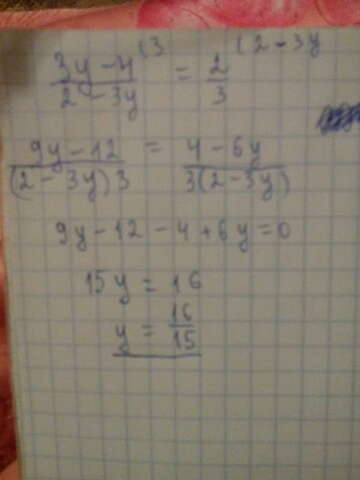 (3y-4)/(2-3y) (3 = 2/3 (2-3y
(9y-12)/((2-3y)3) = (4-6y)/(3(2-3y))
9y-12-4+6y=0
15y=16
y=16/15